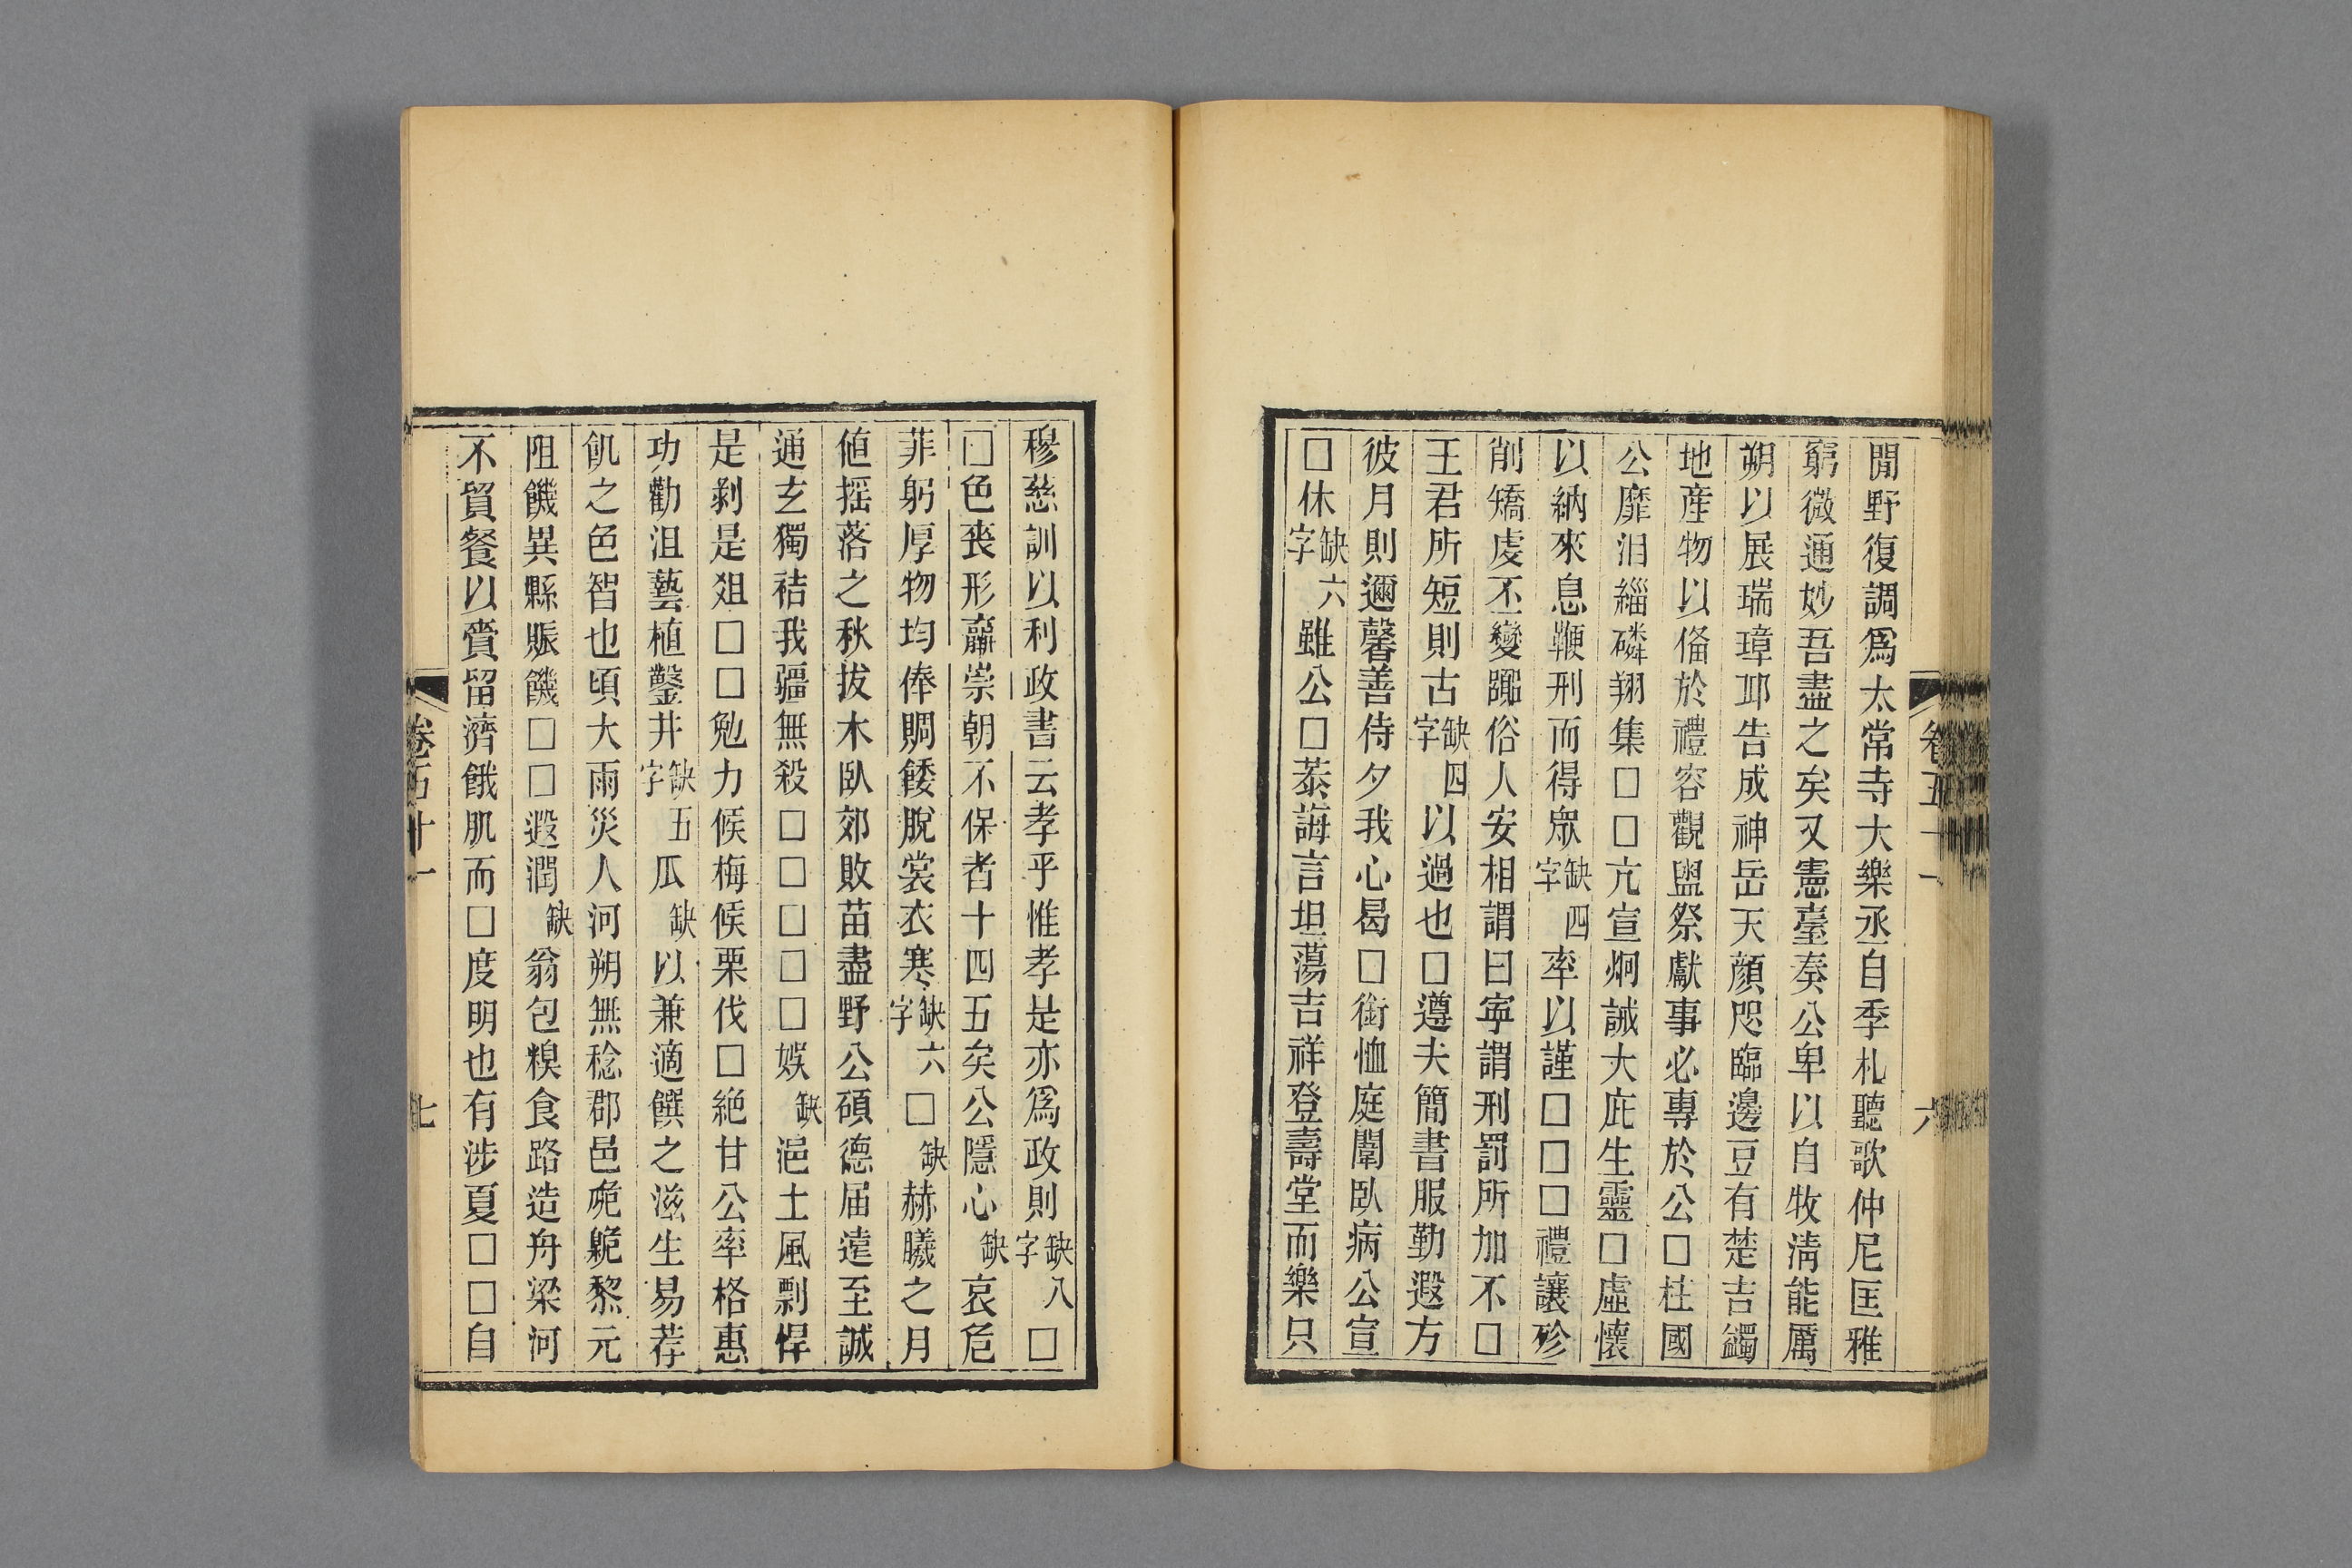 閒野復調爲太常寺大樂丞自季札聽歌仲尼匡雅
窮微通妙吾盡之矣又憲臺奏公卑以自牧清能厲
朔以展瑞璋邛告成神岳天顏咫臨邊豆有楚吉蠲
地産物以俻於禮容觀盥祭獻事必專於公□柱國
公靡汨緇磷翔集□□亢宣炯誡大庇生靈□虛懷
以納來息鞭刑而得眾缺四字率以謹□□□禮讓殄
削矯虔丕變躁俗人安相謂曰寧謂刑罰所加不□
王君所短則古缺四字以過也□遵夫簡書服勤遐方
彼月則邇馨善侍夕我心曷□銜恤庭闈臥病公宣
□休缺六字雖公□菾誨言坦蕩吉祥登壽堂而樂只
卷五十一
六
穆慈訓以利政書云孝乎惟孝是亦爲政則缺八字□
□色喪形鬺崇朝不保者十四五矣公隱心缺哀危
菲躬厚物均俸賙餧脫裳衣寒缺六字□缺赫曦之月
値摇落之秋拔木臥郊敗苗盡野公碩德届遠至誠
通玄獨祮我疆無殺□□□□□娛缺浥土風剽悍
是剥是爼□□勉力候梅候栗伐□絶甘公率格惠
功勸沮藝植鑿井缺五字瓜缺以兼適饌之滋生易荐
飢之色智也頃大雨災人河朔無稔郡邑硊䠥黎元
阻饑異縣賑饑□□遐潤缺翁包糗食路造舟梁河
不貿餐以賫留濟餓肌而□度明也有涉夏□□自
卷五十一
七